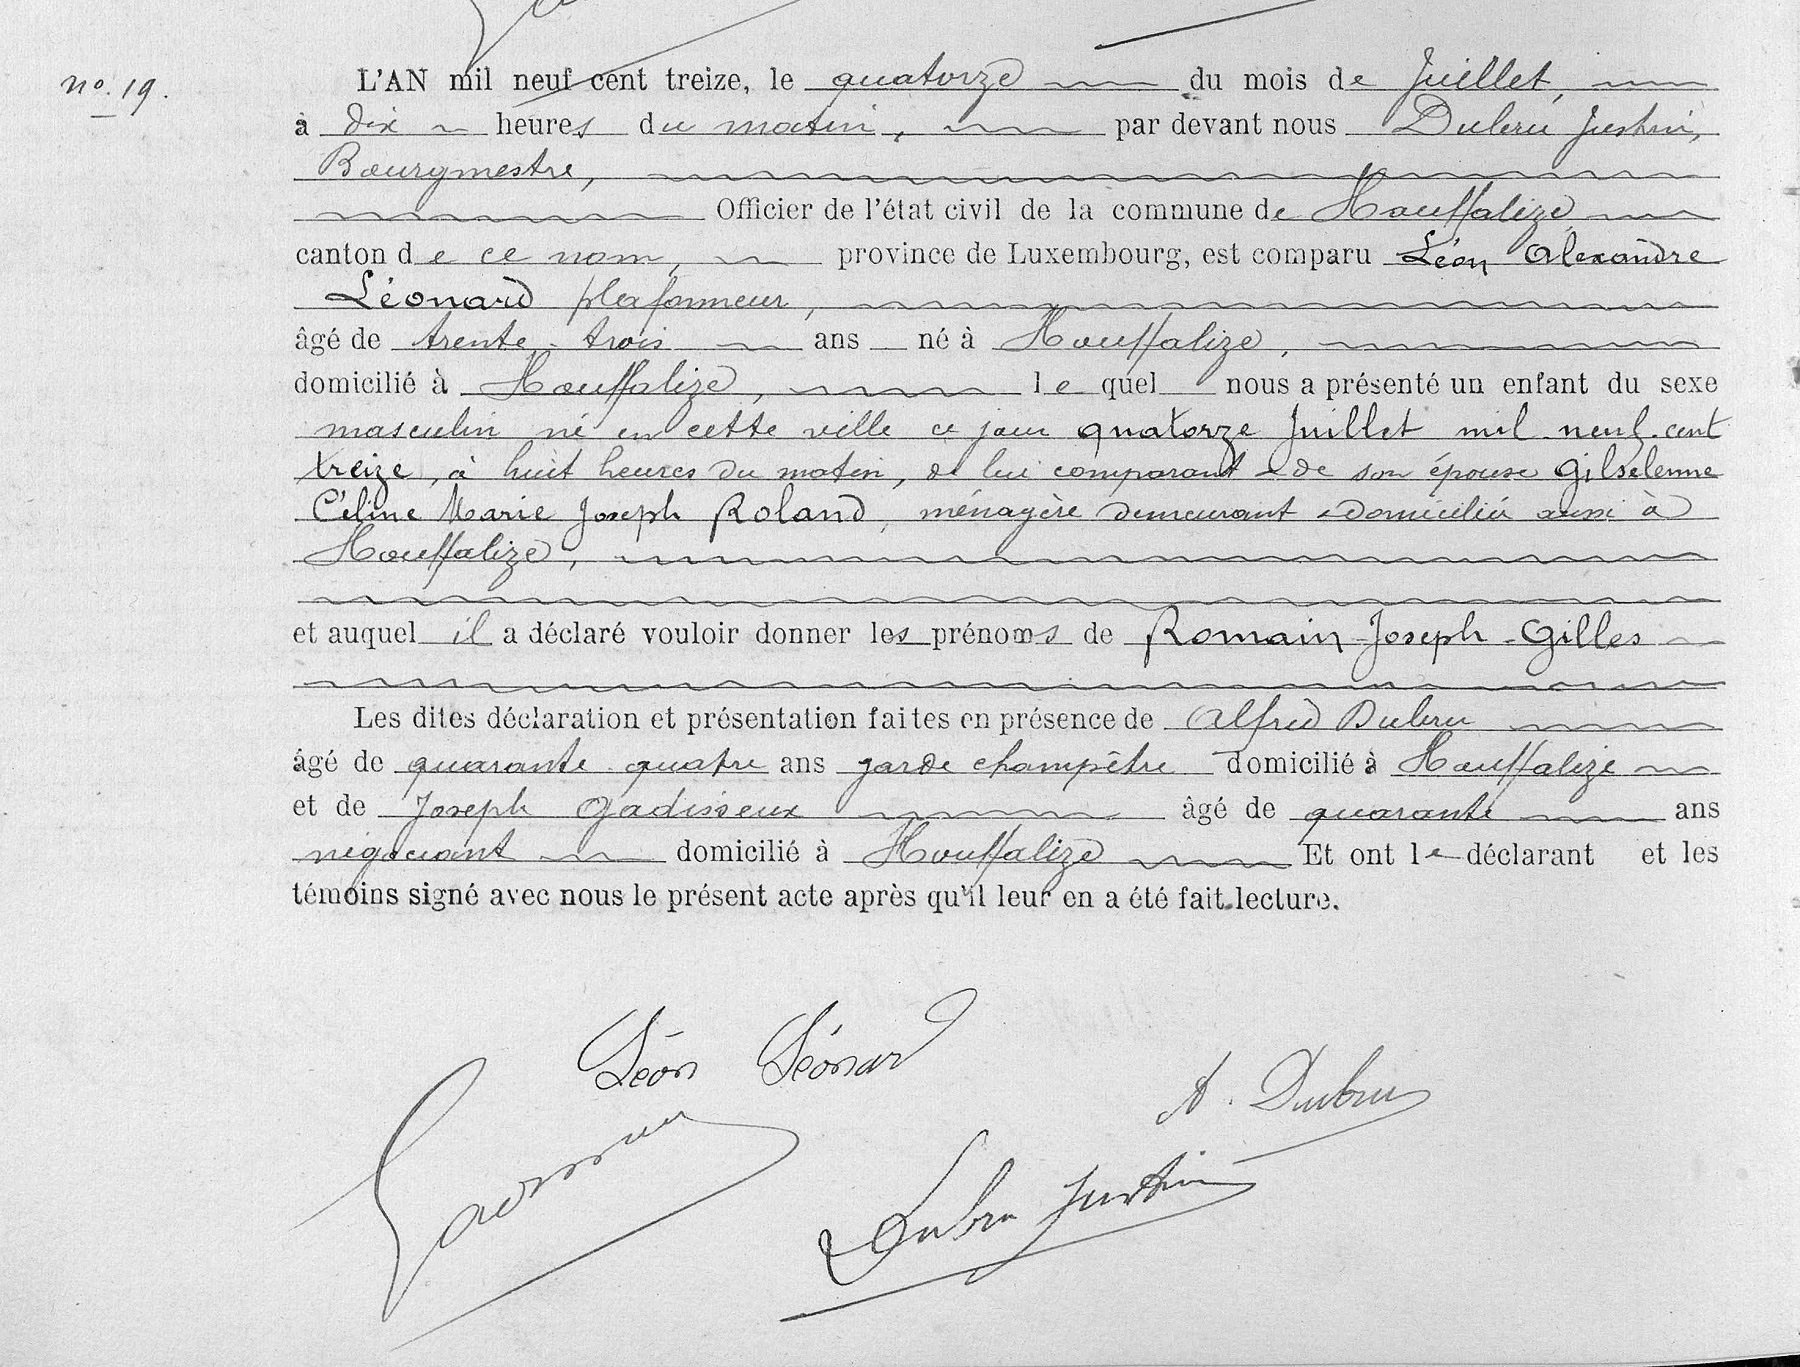 no. 19.
L'AN mil neuf cent treize, le quatorze du mois de Juillet,
à dix heures du matin, par devant nous Dubru Justin,
Bourgmestre,
Officier de l'état civil de la commune de Houffalize
canton de ce nom, province de Luxembourg, est comparu Léon Alexandre
Léonard plafonneur,
âgé de trente-trois ans né à Houffalize,
domicilié à Houffalize, le quel nous a présenté un enfant du sexe
masculin né en cette ville ce jour quatorze Juillet mil neuf cent
treize, à huit heures du matin, de lui comparant & de son épouse Gilselenne
Céline Marie Joseph Roland, ménagère demeurant & domiciliée aussi à
Houffalize,
et auquel il a déclaré vouloir donner les prénoms de Romain-Joseph-Gilles
Les dites déclaration et présentation faites en présence de Alfred Dubru
âgé de quarante quatre ans garde champêtre domicilié à Houffalize
et de Joseph Gadisseux âgé de quarante ans
négociant domicilié à Houffalize Et ont le déclarant et les
témoins signé avec nous le présent acte après qu'il leur en a été fait lecture.
Léon Léonard
A. Dubru
Dubru Justin